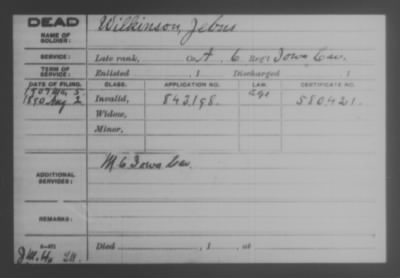 DEAD
NAME OF SOLDIER:
Wilkinson, Jebus
SERVICE:
Late rank, Co. A 6 Reg't Iowa Cav.
TERM OF SERVICE:
Enlisted , 1 Discharged , 1
DATE OF FILING. CLASS. APPLICATION NO. LAW. CERTIFICATE NO.
1890 Aug 2 Invalid, 843.198. 580421.
Widow,
Minor,
ADDITIONAL SERVICES:
M 6 Iowa Cav.
REMARKS:
Died , 1 , at